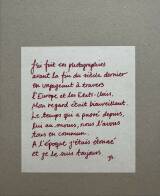 J'ai fait ces photographies
avant la fin du siècle dernier
en voyageant à travers
l'Europe et les Etats-Unis.
Mon regard était bienveillant.
Le temps qui a passé depuis,
lui au moins, nous l'avons
tous en commun.
A l'époque j'étais étonné
et je le suis toujours